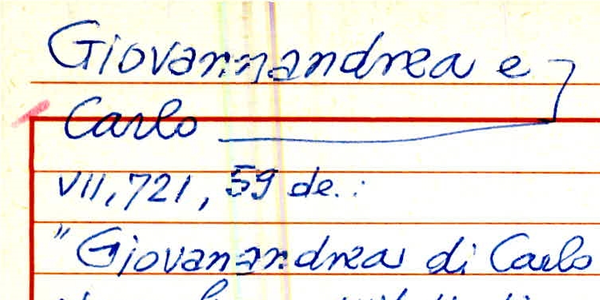 Giovannandrea e
Carlo
VII, 721, 59 de.:
"Giovanandrea di Carlo